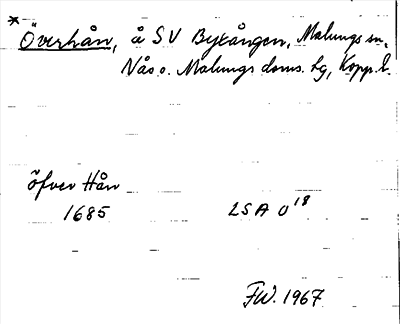 * Överhån, å SV Bytången, Malungs sn.
Nås o. Malungs doms. hg, Kopp. l.
Öfver Hån
1685 LSA U18
FW. 1967